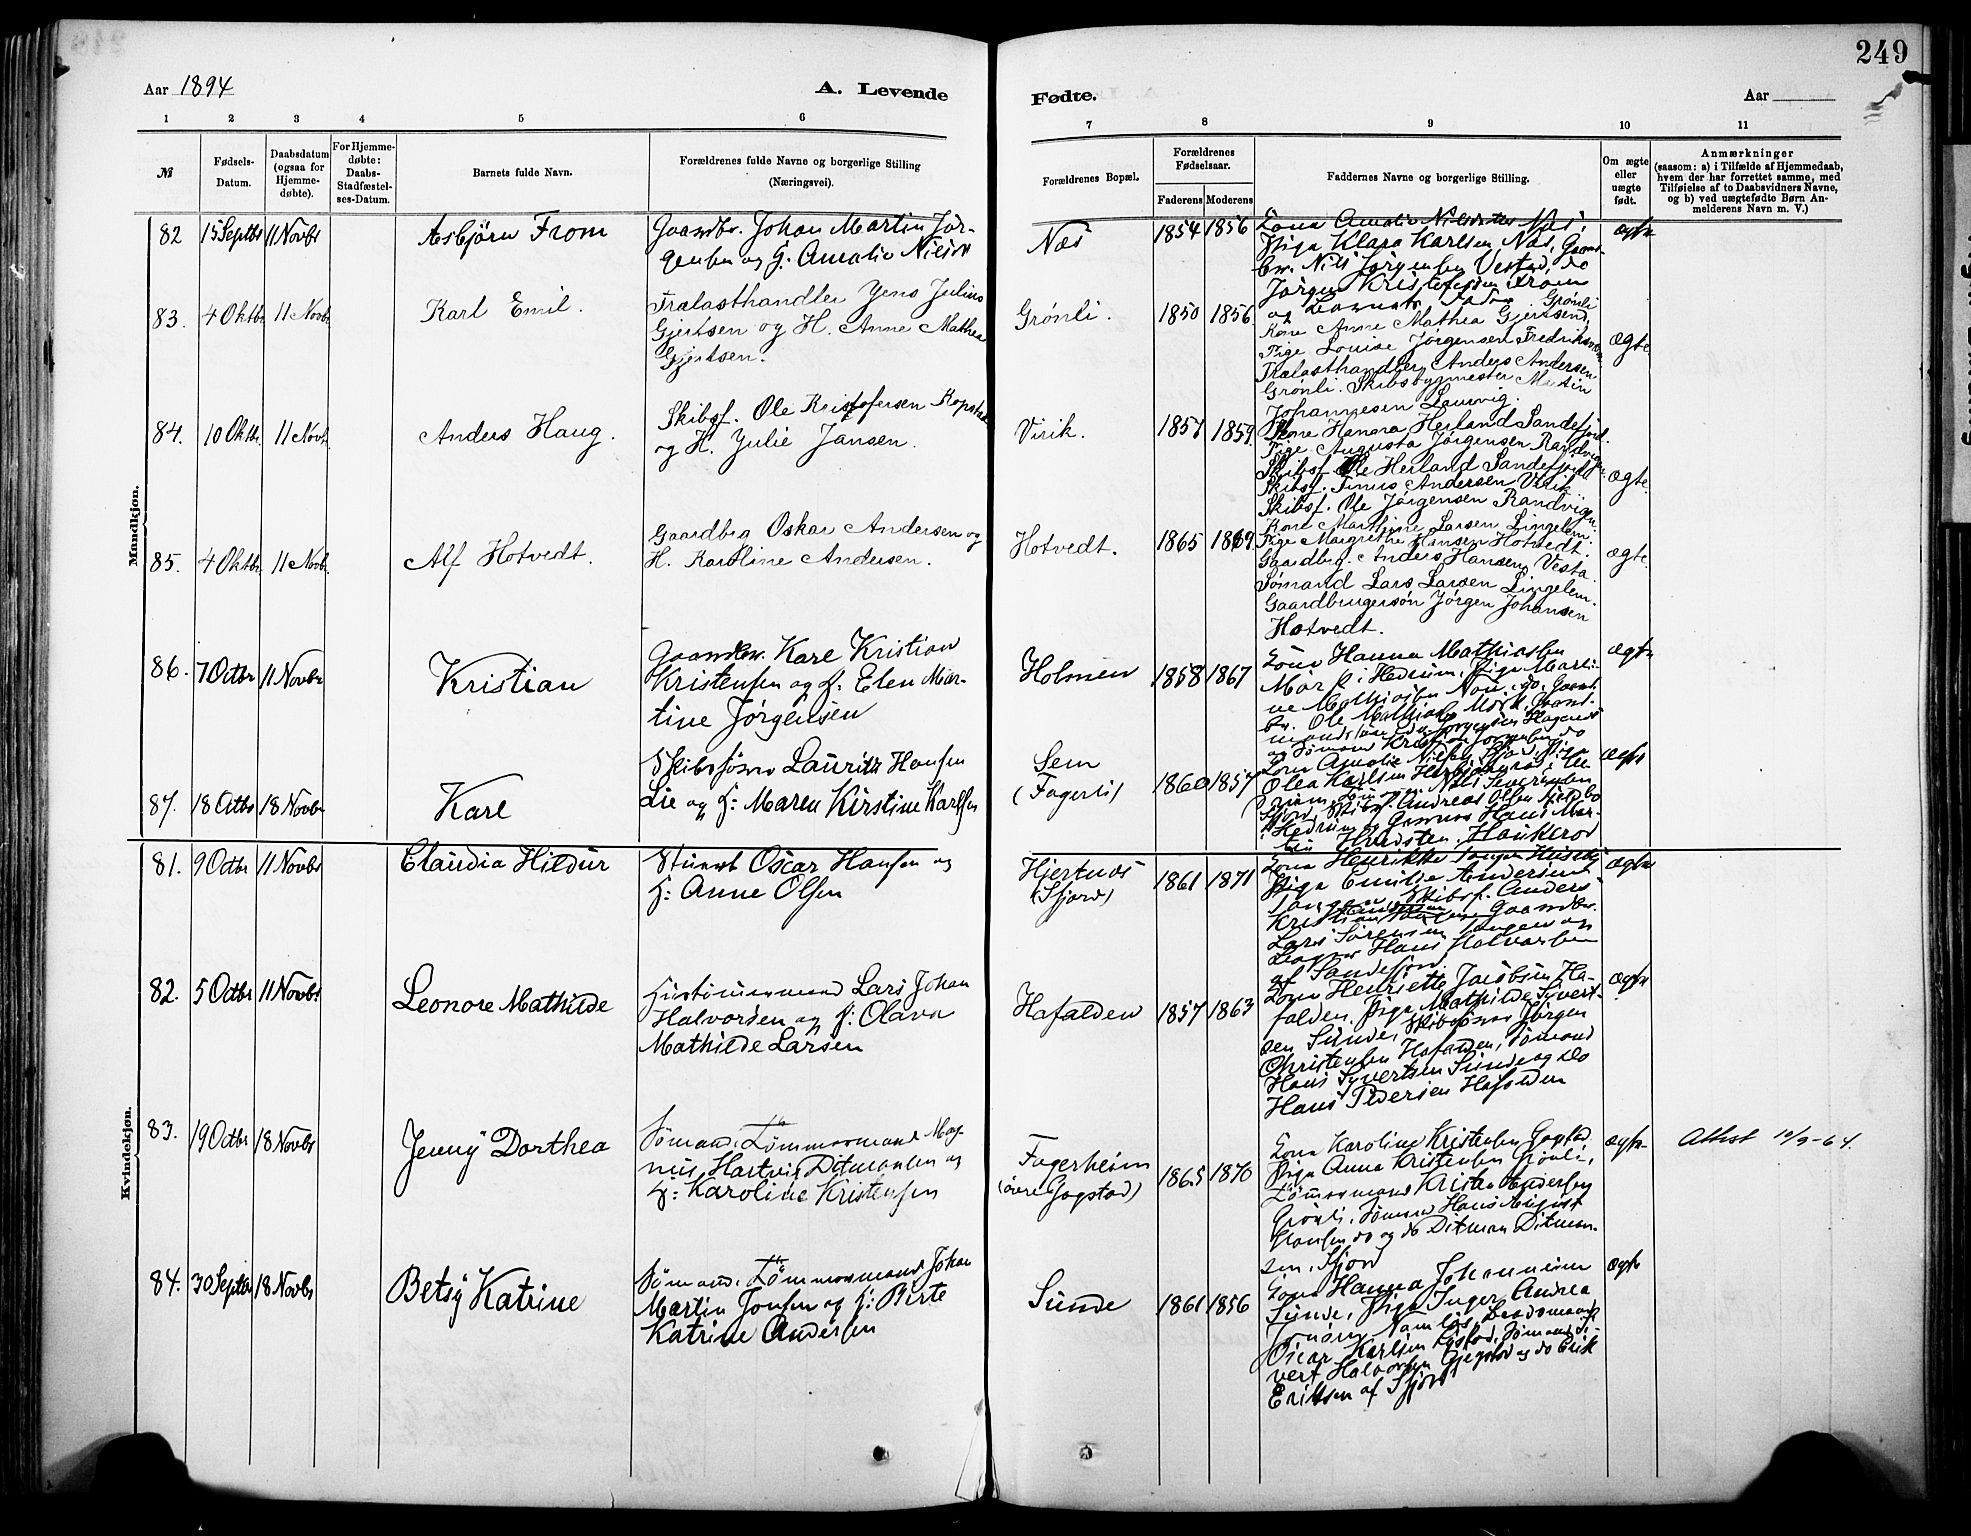 249
Aar 1894
A. Levende
Fødte.
Aar
1 2 3 4 5 6 7 8 9 10 11
№
Fødsels-
Datum.
Daabsdatum
(ogsaa for
Hjemme-
døbte).
For Hjemme-
døbte:
Daabs-
Stadfæstel-
ses-Datum.
Barnets fulde Navn.
Forældrenes fulde Navne og borgerlige Stilling
(Næringsvei).
Forældrenes Bopæl.
Forældrenes
Fødselsaar.
Faderens Moderens
Faddernes Navne og borgerlige Stilling.
Om ægte
eller
uægte
født.
Anmærkninger
(saasom: a) i Tilfælde af Hjemmedaab,
hvem der har forrettet samme, med
Tilføielse af to Daabsvidners Navne,
og b) ved uægtefødte Børn An-
melderens Navn m. V.)
Mandkjøn.
82 15 Septbr 11 Novbr Asbjørn From
Gaardbr. Johan Martin Jør-
gensen og H. Amalie Nielsen
Næs 1854 1856
Kona Amalie Næs,
Pige Klara Karlsen Næs, Gaard-
br. Nils Jørgensen Vestad, do
Jørgen Kristofersen From
og Barnets Fader
ægte
83. 4 Oktbr. 11 Novbr. Karl Emil.
Trælasthandler Jens Julius
Gjertsen og H. Anne Mathea
Gjertsen.
Grønli. 1850 1856
Grønli
Kone Anne Mathea Gjertsen,
Pige Louise Jørgensen Fredriksværn
Trælasthandler Anders Andersen
Grønli. Skibsbygmester Martin
Johannesen Laurvig.
ægte.
84. 10 Oktbr. 11 Novbr. Anders Haug.
Skibsf. Ole Kristofersen Ropstad
og H. Julie Jansen.
Virik. 1857 1859
Kone Hanna Herland Sandefjord.
Pige Augusta Jørgensen Randvigen
Skibsf. Ole Herland Sandefjord
Skibsf. Tinus Andersen Virik
Skibsf. Ole Jørgensen Randvigen
ægte.
85. 4 Oktbr. 11 Novbr. Alf Hotvedt.
Gaardbrg Oskar Andersen og
H. Karoline Andersen.
Hotvedt. 1865 1869
Kone Marthine Larsen Lingelem.
Pige Margrethe Hansen Hotvedt.
Gaardbrg. Anders Hansen Vesta.
Sømand Lars Larsen Lingelem.
Gaardbrugersøn Jørgen Johansen
Hotvedt.
ægte.
86. 7 Octbr 11 Novbr Kristian
Gaardbr. Karl Kristian
Kristensen og H: Elen Mar-
tine Jørgensen
Holmen 1858 1867
Kona Hanna Mathiasen
Mørk i Hedrum, Pige Marti-
ne Mathiasen
br. Ole Mathiasen Mørk,
ægte
87. 18 Octbr 18 Novbr Karl
Skibstømrer Laurits Hansen
Lie og H: Maren Kirstine Karlsen
Sem
(Fagerli) 1860 1857
Kona Amalie Nielsen Sfjord, Pige
Olea Karlsen
Skibsf. Andreas Olsen
Haukerød
ægte
Kvindekjøn.
81. 9 Octbr 11 Novbr Claudia Hildur
Stuert Oscar Hansen og
H: Anne Olsen
Hjertnæs
(Sfjord) 1861 1871
Kona Henrikke
Pige Emilie Andersen
Skibsf. Anders
Kristian Gaardbr.
Lars Sørensen og
Hans Halvorsen
af Sandefjord.
ægte
82. 5 Octbr 11 Novbr Leonore Mathilde
Hustømmermand Lars Johan
Halvorsen og H: Olava
Mathilde Larsen
Hafalden 1857 1863
Kona Henriette Jacobsen Ha-
falden, Pige Mathilde Syvert-
sen Sunde, Skibstømrer Jørgen
Christensen Hafalden, Sømand
Hans Syvertsen Sunde og do
Hans Pedersen Hafalden
ægte
83. 19 Octbr 18 Novbr Jenny Dorthea
Sømand, Tømmermand Mag-
nus Hartvig Ditmansen og
H: Karoline Kristensen
Fagerheim
(øvre Gogstad) 1865 1870
Kona Karoline Kristensen Gogstad,
Pige Anna Kristensen Grønli,
Tømmermand Kristen Andersen
Grønli, Sømand Hans August
Hansen do og do Ditman Ditman-
sen, Sfjord
ægte
Attest 10/9-64.
84. 30 Septbr 18 Novbr Betsy Katrine
Sømand, Tømmermand Johan
Martin Jonsen og H: Birte
Katrine Andersen
Sunde 1861 1856
Kona Hanna Johannesen
Sunde, Pige Inger Andrea
Oscar Karlsen Sømand Si-
vert Halvorsen og do Erik
Eriksen af Sfjord
ægte